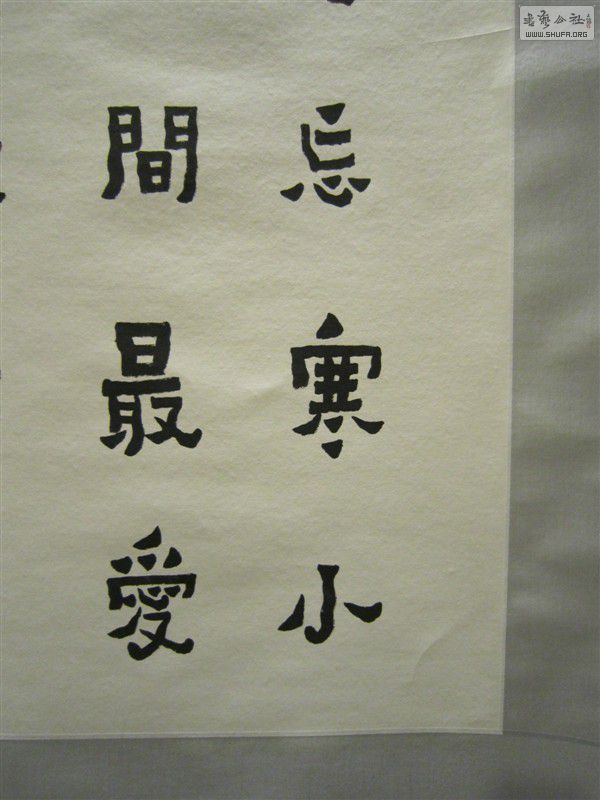 忘寒小
間最愛
書藝公社
WWW.SHUFA.ORG